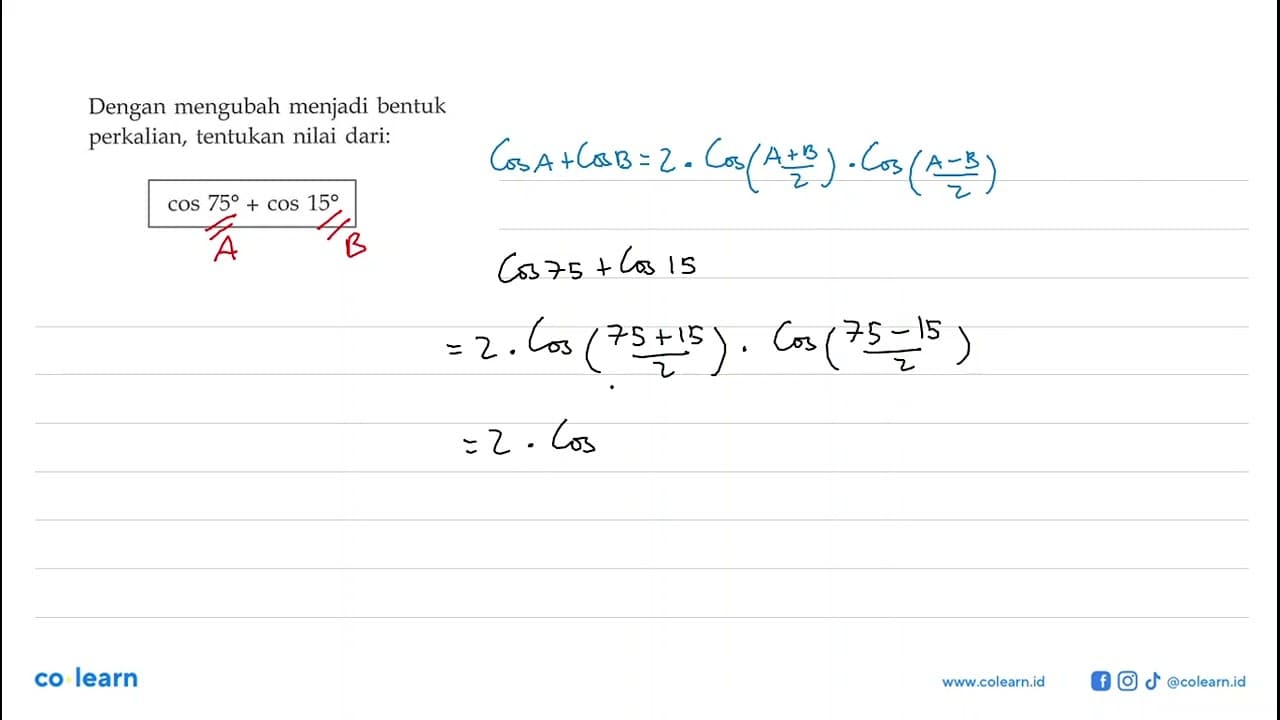 Dengan mengubah menjadi bentuk
perkalian, tentukan nilai dari:
cos 75° + cos 15°
A
B
Cos A + Cos B = 2 . Cos (A+B/2) . Cos (A-B/2)
Cos 75 + Cos 15
= 2 . Cos (75+15/2) . Cos (75-15/2)
= 2 . Cos
co learn
www.colearn.id
@colearn.id